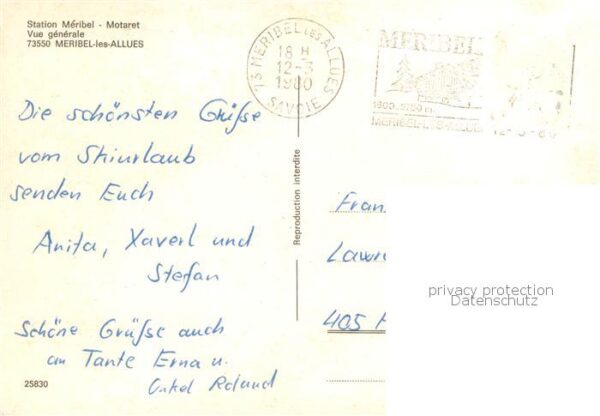 Station Méribel - Motaret
Vue générale
73550 MERIBEL-les-ALLUES
73 MERIBEL LES ALLUES
18 H
12-3
1980
SAVOIE
MERIBEL
MERIBEL-LES-ALLUES
Die schönsten Grüße
vom Skiurlaub
senden Euch
Anita, Xaverl und
Stefan
Schöne Grüße auch
an Tante Erna u.
Onkel Roland
25830
Reproduction interdite
405
privacy protection
Datenschutz